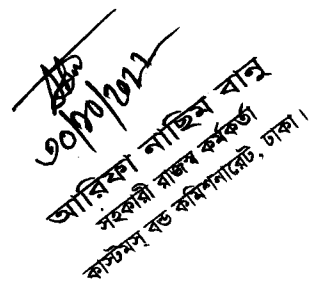 ৩০/১০/২০২২
আরিফা নাছিম বানু
সহকারী রাজস্ব কর্মকর্তা
কাস্টমস্ বন্ড কমিশনারেট, ঢাকা।